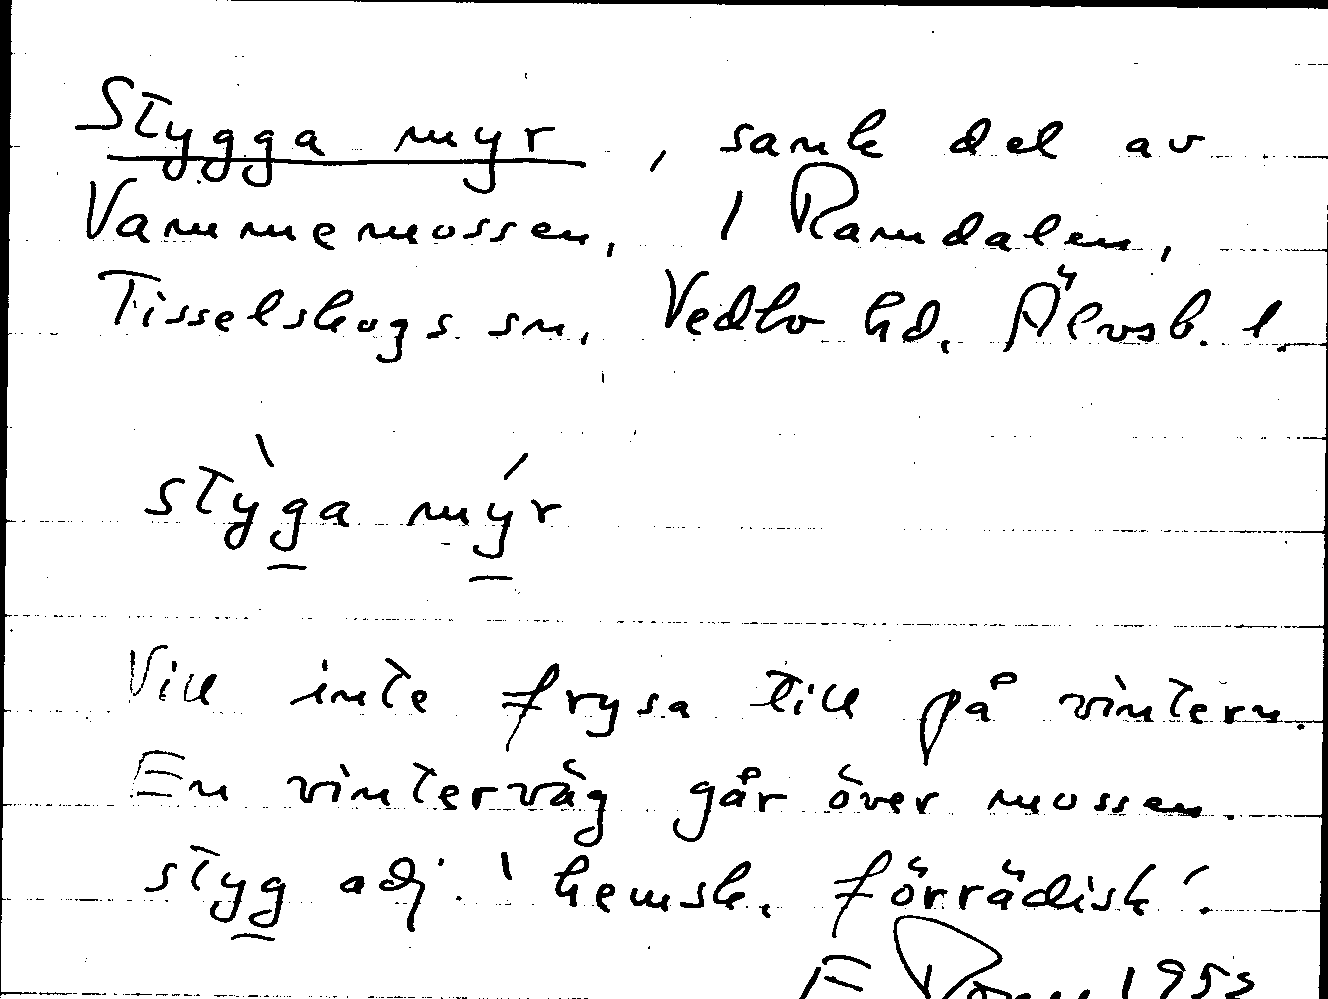 Stygga myr, sank del av
Vammemossen, 1 Ramdalen,
Tisselskogs sn, Vedbo hd, Älvsb. l.
stỳ̖ga mýr
Vill inte frysa till på vintern.
En vinterväg går över mossen.
styg adj. 'hemsk, förrädisk'.
F 1953